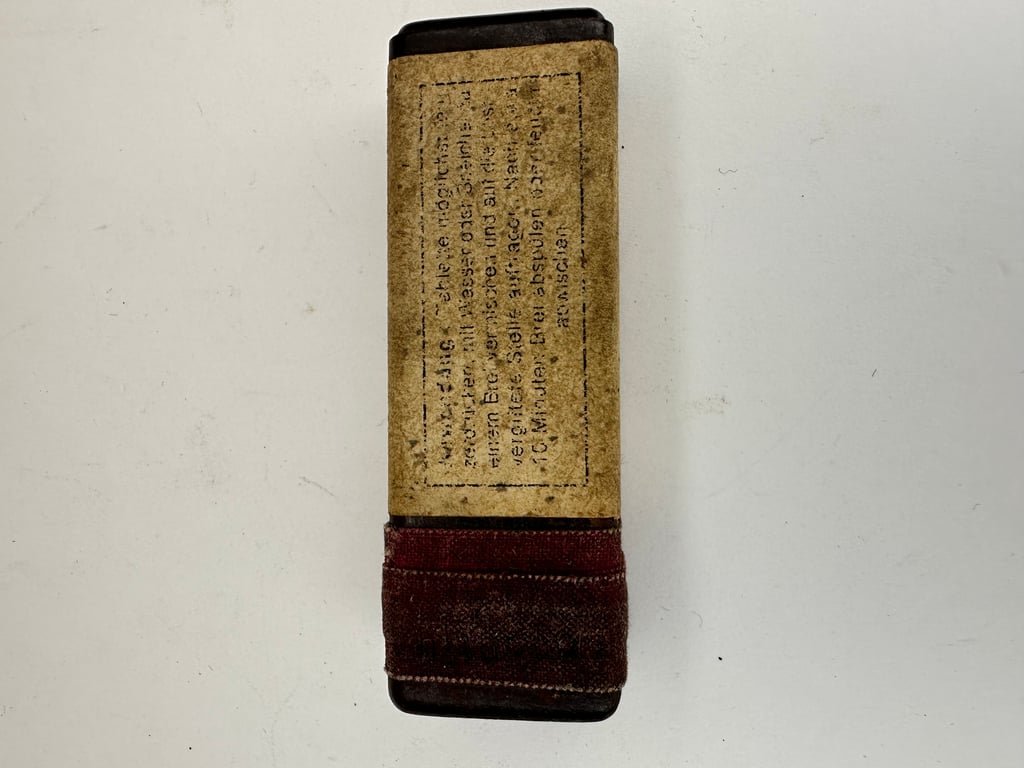 Anwendung: Tablette möglichst
zerdrücken, mit Wasser oder Speichel zu
einem Brei vermischen und auf die
vergiftete Stelle auftragen. Nach etwa
10 Minuten Brei abspülen oder feucht
abwischen.